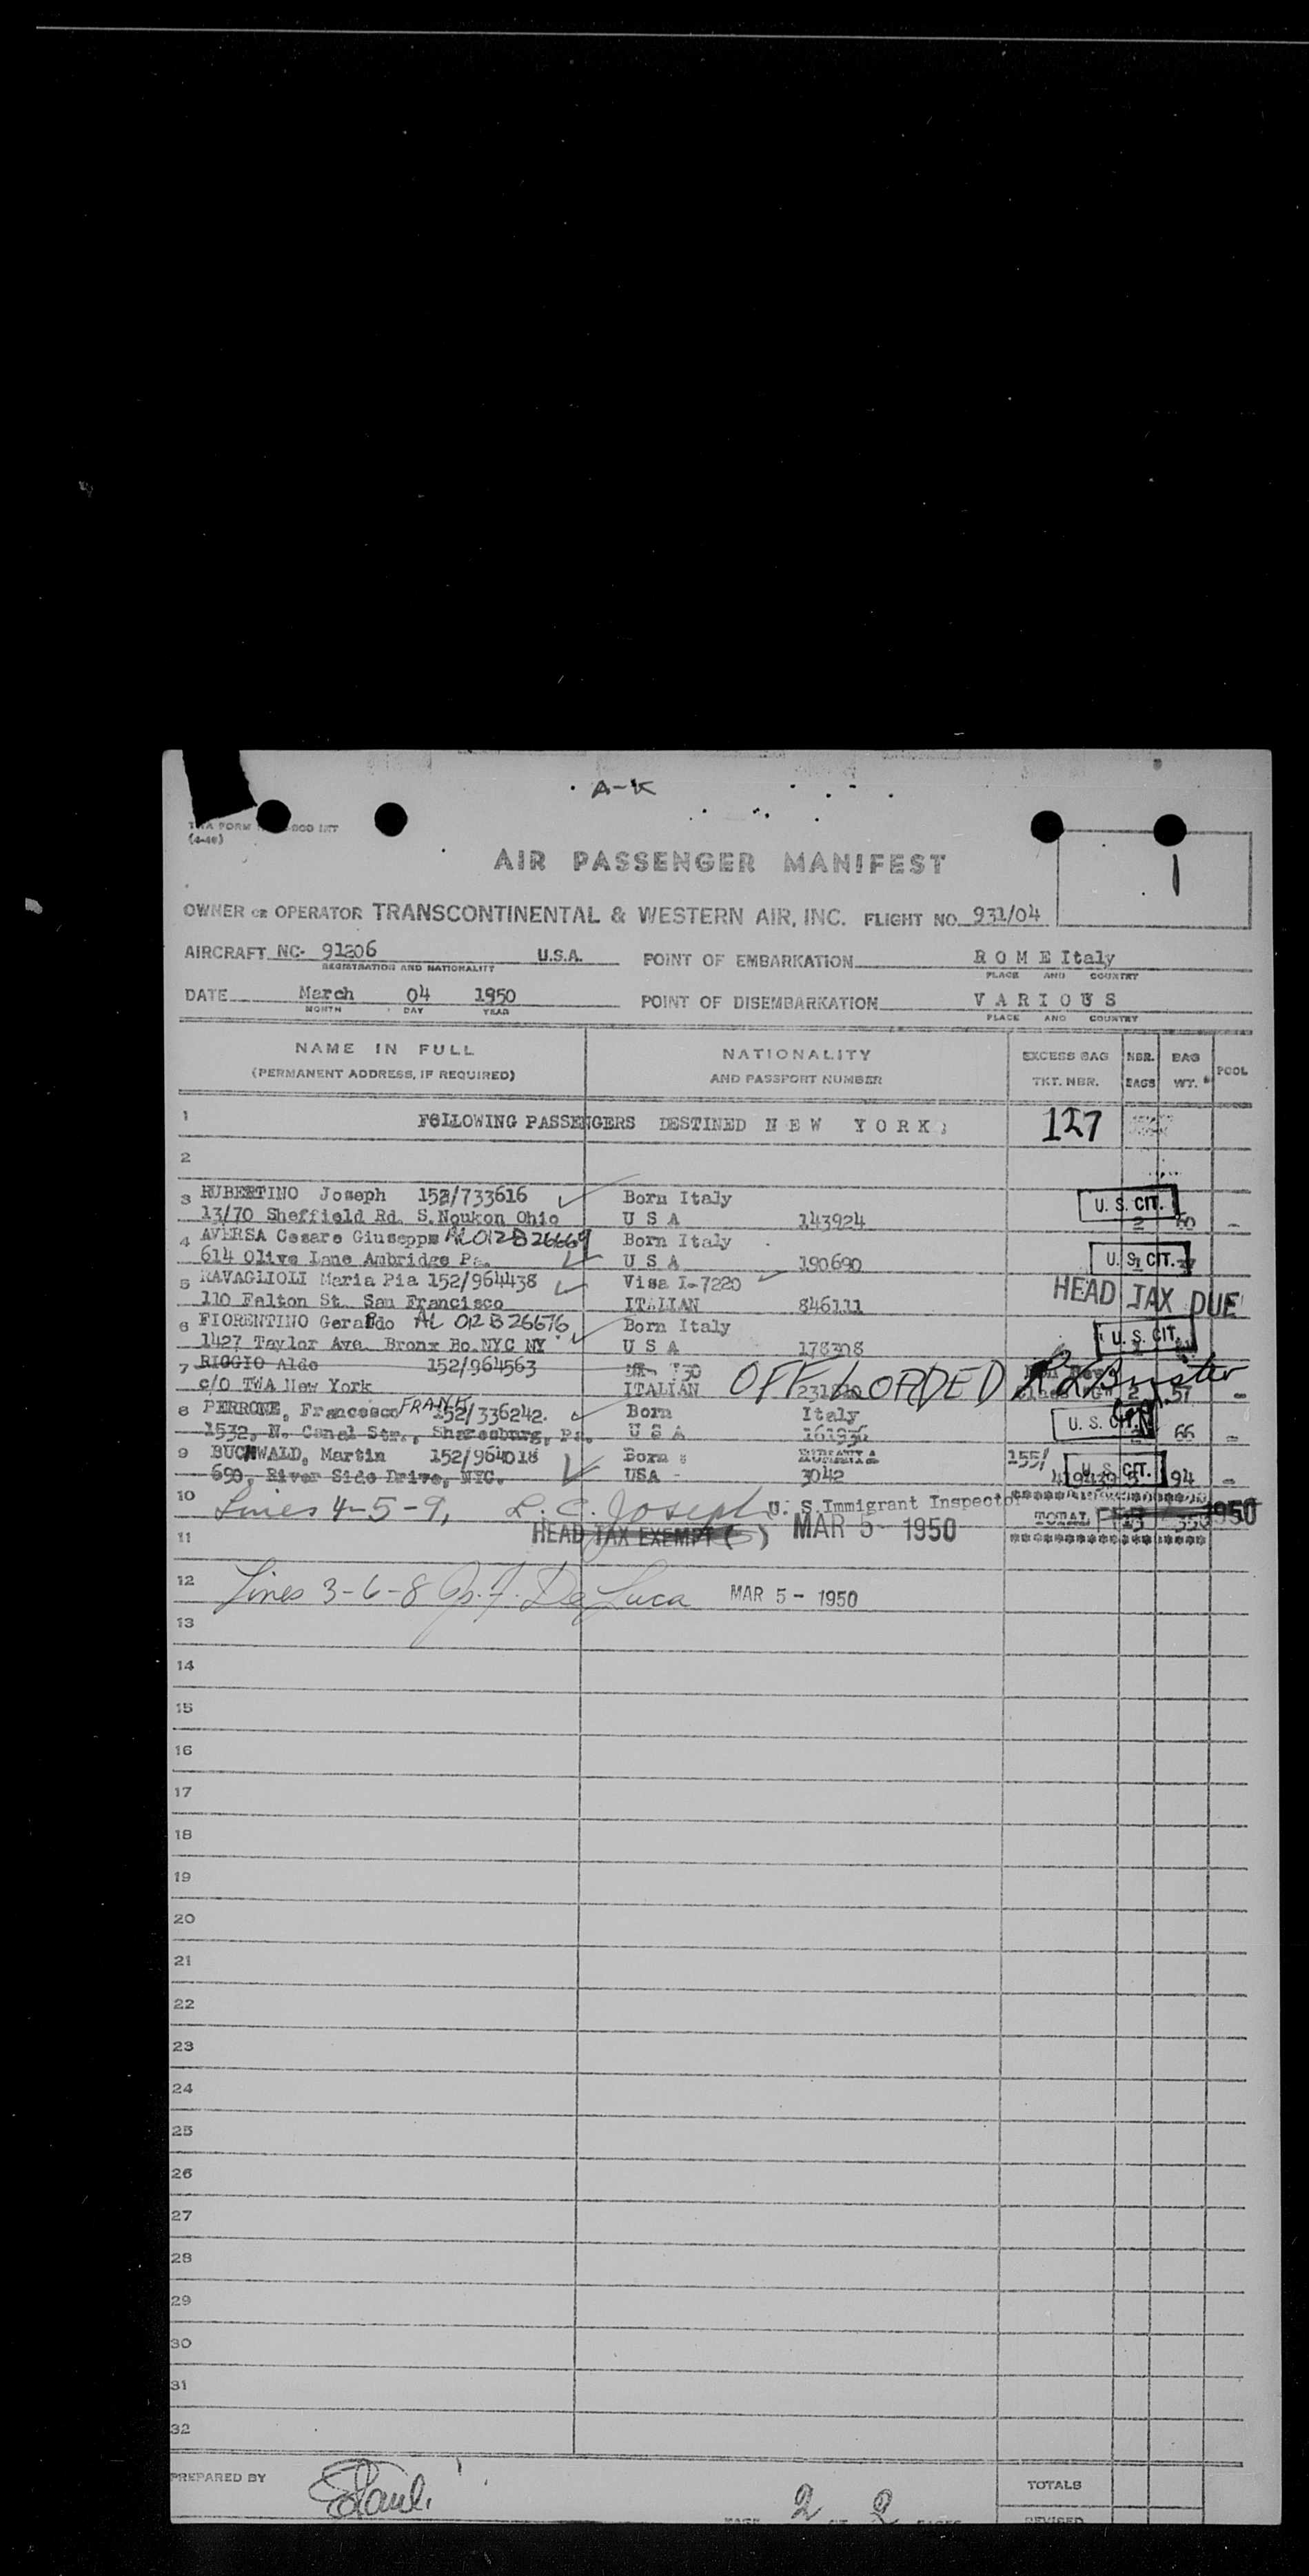 A-K
(4-46)
1
AIR PASSENGER MANIFEST
OWNER OR OPERATOR TRANSCONTINENTAL & WESTERN AIR, INC. FLIGHT NO. 931/04
AIRCRAFT NC- 91206 U.S.A. POINT OF EMBARKATION R O M E Italy
REGISTRATION AND NATIONALITY PLACE AND COUNTRY
DATE March 04 1950 POINT OF DISEMBARKATION V A R I O U S
MONTH DAY YEAR PLACE AND COUNTRY
NAME IN FULL NATIONALITY EXCESS BAG NBR. BAG POOL
(PERMANENT ADDRESS, IF REQUIRED) AND PASSPORT NUMBER TKT. NBR. BAGS WT.
1 FOLLOWING PASSENGERS DESTINED N E W Y O R K ; 127
2
3 RUBERTINO Joseph 152/733616 Born Italy U. S. CIT.
13/70 Sheffield Rd. S. Noukon Ohio U S A 143924 2 -
4 AVERSA Cesare Giuseppe AL012B26669 Born Italy
614 Olive Lane Ambridge Pa. U S A 190690 U. S. CIT.
5 RAVAGLIOLI Maria Pia 152/964438 Visa I-7220 HEAD TAX DUE
110 Falton St. San Francisco ITALIAN 846111
6 FIORENTINO Geraldo AL 012B26676 Born Italy
1427 Taylor Ave. Bronx Bo.NYC NY U S A 178308 U. S. CIT.
7 RIGGIO Aldo 152/964563 OFF LOADED
c/o TWA New York ITALIAN 2 57 -
8 PERRONE, Francesco FRANK 152/336242. Born Italy
1532, N. Canal Str., Sharesburg, Pa. U S A 161936 U. S. CIT. 66 -
9 BUCHWALD, Martin 152/964018 Born : RUMANIA 155/
690, River Side Drive, NYC. USA - 3042 U. S. CIT. 94 -
10 Lines 4-5-9, L. C. Joseph U. S. Immigrant Inspector
HEAD TAX EXEMPT ( ) MAR 5 - 1950 TOTAL 13 1950
11
12 Lines 3-6-8 De Luca MAR 5 - 1950
13
14
15
16
17
18
19
20
21
22
23
24
25
26
27
28
29
30
31
32
PREPARED BY TOTALS
2 2